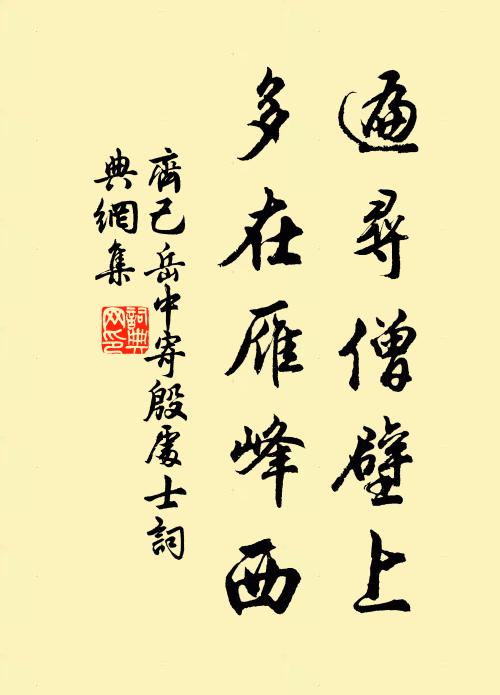 遍尋僧壁上
多在雁峰西
齊己岳中寄殷處士詞
典網集
詞典网印